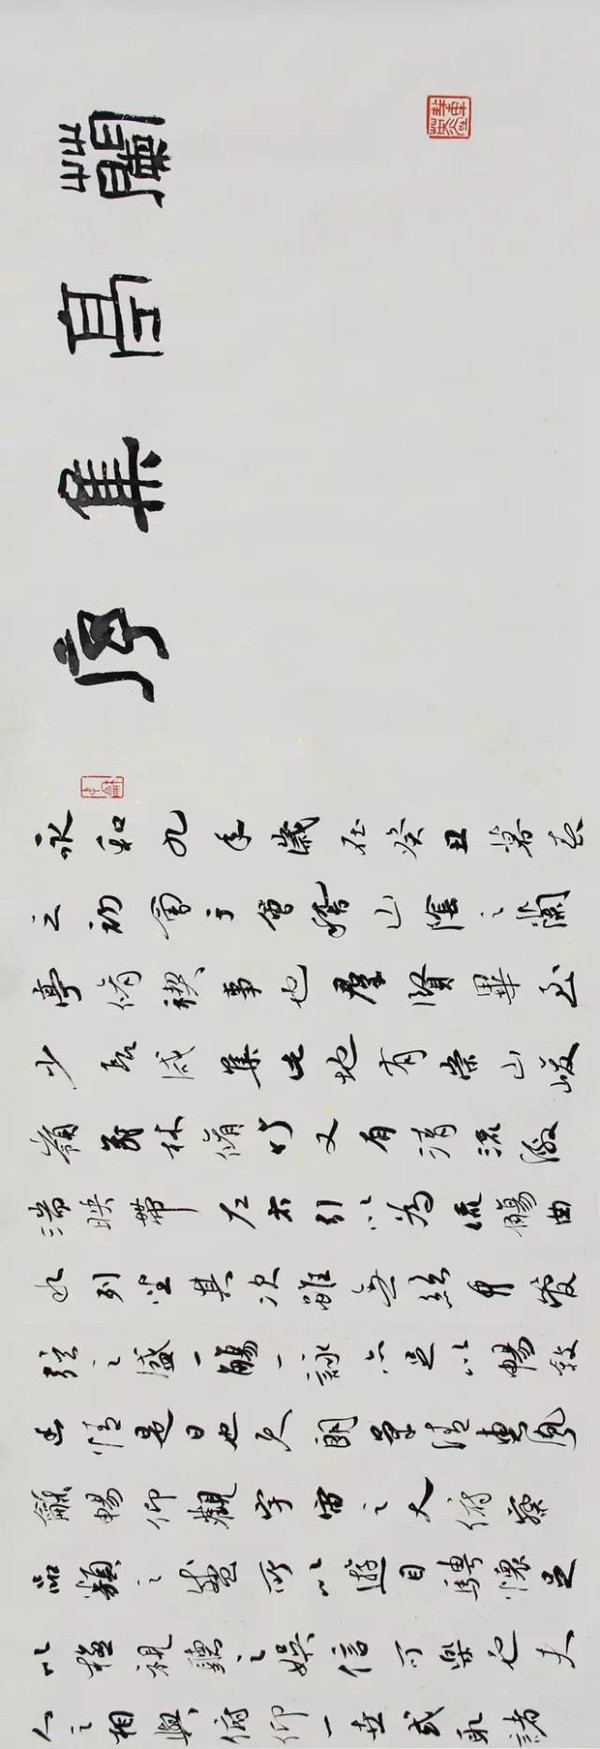 蘭亭集序
永和九年歲在癸丑暮春
之初會于會稽山陰之蘭
亭脩禊事也羣賢畢至
少長咸集此地有崇山峻
嶺茂林脩竹又有清流激
湍映帶左右引以為流觴曲
水列坐其次雖無絲竹管
弦之盛一觴一詠亦足以暢敘
幽情是日也天朗氣清惠風
龢暢仰觀宇宙之大俯察
品類之盛所以遊目騁懷足
以極視聽之娛信可樂也夫
人之相與俯仰一世或取諸